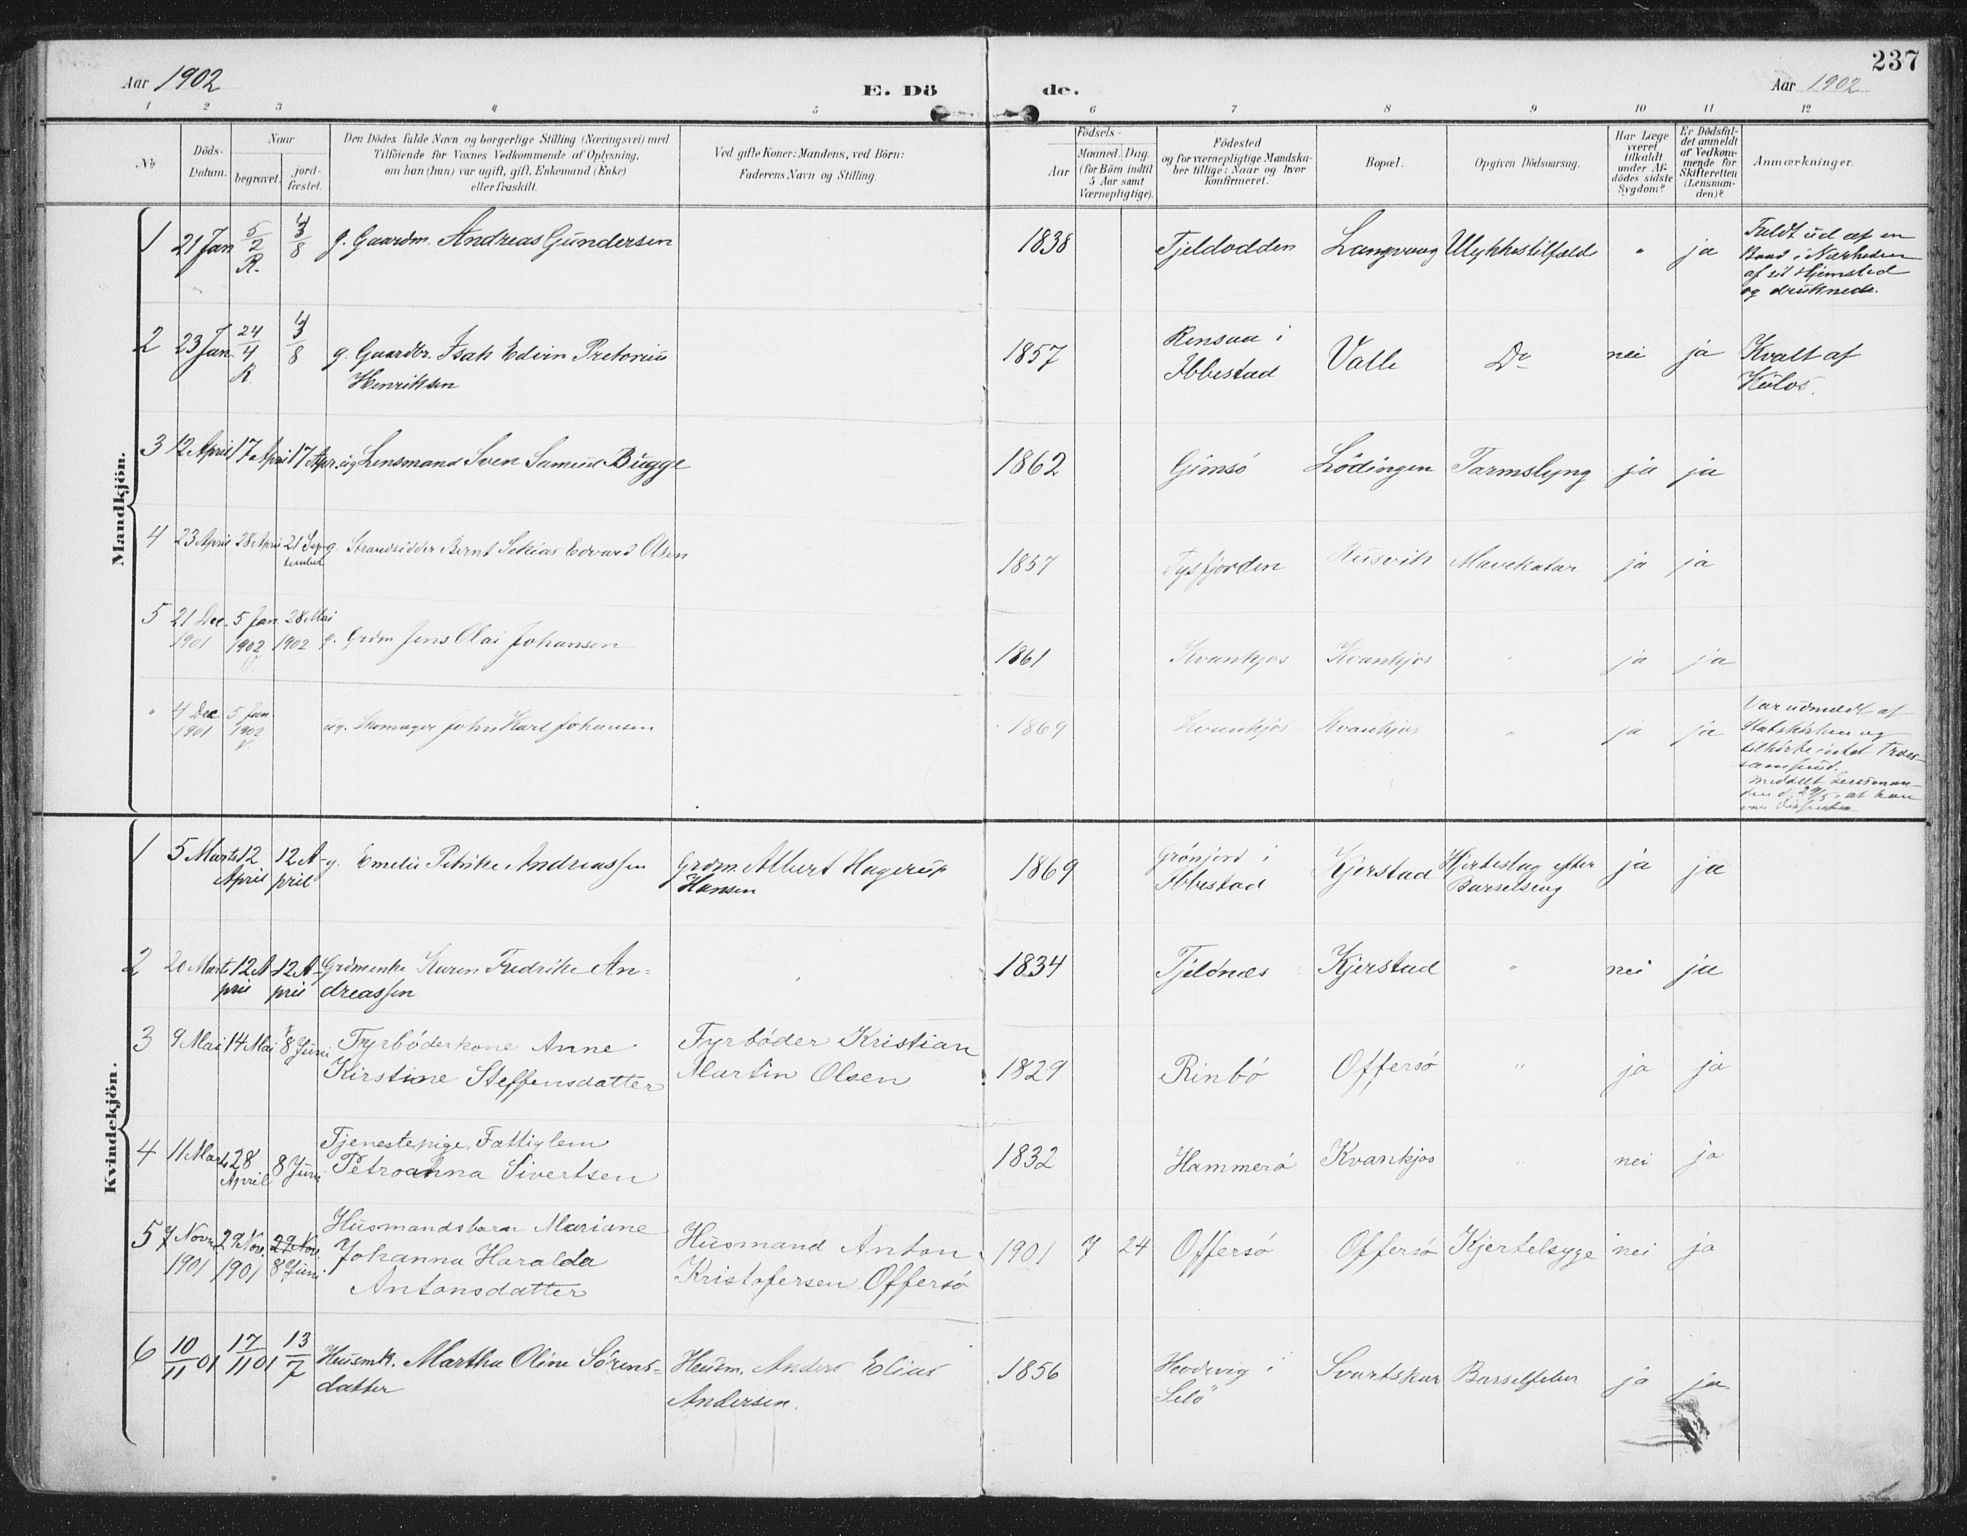 237
Aar 1902
E. Dö
de.
Aar 1902
1 2 3 4 5 6 7 8 9 10 11 12
No
Döds-Datum.
Naar
begravet.
jord-fæstet.
Den Dödes fulde Navn og borgerlige Stilling (Næringsvei) med
Tilföiende for Voxnes Vedkommende af Oplysning,
om han (hun) var ugift, gift, Enkemand (Enke)
eller fraskilt.
Ved gifte Koner: Mandens, ved Börn:
Faderens Navn og Stilling.
Födsels-
Aar
Maaned. Dag.
(for Börn indtil
5 Aar samt
Værnepligtige).
Födested
og for værnepligtige Mandska-
ber tillige: Naar og hvor
konfirmeret.
Bopæl.
Opgiven Dödsaarsag.
Har Læge
været
tilkaldt
under Af-
dödes sidste
Sygdom?
Er Dödsfal-
det anmeldt
af Vedkom-
mende for
Skifteretten
(Lensman-
den)?
Anmærkninger.
Mandkjön.
1 21 Jan 5/2 R. 3/8 g. Gaardm. Andreas Gundersen 1838 Tjeldodden Langvaag Ulykkestilfælde " ja Faldt ud af en
Baad i Nærheden
af sit Hjemsted
og druknede.
2 23 Jan. 24/4 R. 3/8 g. Gaardbr. Isak Edvin Pretorius
Henriksen 1857 Rensaa i
Ibbestad Valle Do nei ja Kvalt af
Kulos.
3 12 April 17 April 17 Apr. ug Lensmand Sven Samuel Bugge 1862 Gimsö Lödingen Tarmslyng ja ja
4 23 April 28 April 21 Sep-
tember g. Strandsidder Bernt Sekias Edvard Olsen 1857 Tysfjorden Rusvik Mavekatar ja ja
5 21 Dec.
1901 5 Jan.
1902 28 Mai
1902 g. Grdm Jens Olai Johansen 1861 Kvankjos Kvankjos " ja ja
" 4 Dec
1901 5 Jan
1902 ug. Skomager John Karl Johansen 1869 Kvankjos Kvankjos " ja ja Var udmeldt af
Statskirken og
tilhörte intet Troes-
samfund.
Meddelt Lensman-
den d. 29/5, at han
var
Kvindekjön.
1 5 Marts 12
April 12 A-
pril g. Emelie Petrike Andreassen Grdm. Albert Hagerup
Hansen 1869 Grönjord i
Ibbestad Kjerstad Hjerteslag efter
Barselseng ja ja
2 20 Marts 12 A-
pril 12 A-
pril Grdmenke Karen Fredrike An-
dreassen 1834 Tjeldnes Kjerstad " nei ja
3 9 Mai 14 Mai 8 Juni Fyrböderkone Anne
Kirstine Steffensdatter Fyrböder Kristian
Martin Olsen 1829 Rinbö Offersö " ja ja
4 11 Marts 28
April 8 Juni Tjenestepige, Fattiglem
Petroanna Sivertsen 1832 Hammerö Kvankjos " nei ja
5 7 Novr
1901 29 Nov.
1901 29 Nov.
8 Juni Husmandsbarn Mariane
Johanna Haralda
Antonsdatter Husmand Anton
Kristofersen Offersö 1901 7 24 Offersö Offersö Kjertelsyge nei ja
6 10/11 01 17/11 01 13/7 Husmk. Martha Oline Sörens-
datter Husm. Anders Elias
Andersen. 1856 i
Svartskar Barselfeber ja ja.